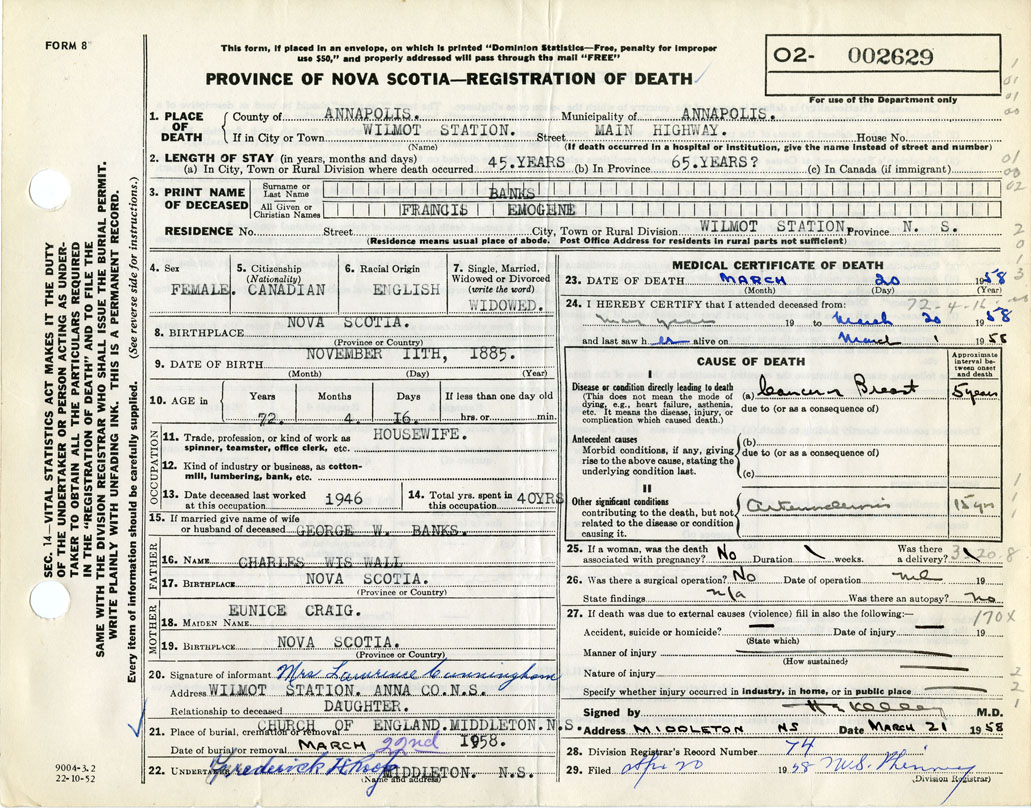 FORM 8
This form, if placed in an envelope, on which is printed "Dominion Statistics—Free, penalty for improper
use $50," and properly addressed will pass through the mail "FREE"
PROVINCE OF NOVA SCOTIA—REGISTRATION OF DEATH
O2- 002629
For use of the Department only
1. PLACE OF DEATH
County of ANNAPOLIS. Municipality of ANNAPOLIS.
If in City or Town WILMOT STATION. Street MAIN HIGHWAY. House No.
(Name) (If death occurred in a hospital or institution, give the name instead of street and number)
2. LENGTH OF STAY (in years, months and days)
(a) In City, Town or Rural Division where death occurred 45.YEARS (b) In Province 65.YEARS? (c) In Canada (if immigrant)
3. PRINT NAME OF DECEASED
Surname or Last Name BANKS
All Given or Christian Names FRANCIS EMOGENE
RESIDENCE No. Street City, Town or Rural Division WILMOT STATION, Province N. S.
(Residence means usual place of abode. Post Office Address for residents in rural parts not sufficient)
SEC. 14—VITAL STATISTICS ACT MAKES IT THE DUTY
OF THE UNDERTAKER OR PERSON ACTING AS UNDER-
TAKER TO OBTAIN ALL THE PARTICULARS REQUIRED
IN THE "REGISTRATION OF DEATH" AND TO FILE THE
SAME WITH THE DIVISION REGISTRAR WHO SHALL ISSUE THE BURIAL PERMIT.
WRITE PLAINLY WITH UNFADING INK. THIS IS A PERMANENT RECORD.
Every item of information should be carefully supplied. (See reverse side for instructions.)
4. Sex FEMALE.
5. Citizenship (Nationality) CANADIAN
6. Racial Origin ENGLISH
7. Single, Married, Widowed or Divorced (write the word) WIDOWED.
8. BIRTHPLACE NOVA SCOTIA.
(Province or Country)
9. DATE OF BIRTH NOVEMBER IITH, 1885.
(Month) (Day) (Year)
10. AGE in Years 72. Months 4. Days I6. If less than one day old hrs. or min.
OCCUPATION
11. Trade, profession, or kind of work as spinner, teamster, office clerk, etc. HOUSEWIFE.
12. Kind of industry or business, as cotton-mill, lumbering, bank, etc.
13. Date deceased last worked at this occupation 1946
14. Total yrs. spent in this occupation 40YRS
15. If married give name of wife or husband of deceased GEORGE W. BANKS.
FATHER
16. NAME CHARLES WIS WALL
17. BIRTHPLACE NOVA SCOTIA.
(Province or Country)
MOTHER
18. MAIDEN NAME EUNICE CRAIG.
19. BIRTHPLACE NOVA SCOTIA.
(Province or Country)
20. Signature of informant Mrs Lawrence Cunningham
Address WILMOT STATION. ANNA CO.N.S.
Relationship to deceased DAUGHTER.
21. Place of burial, cremation or removal CHURCH OF ENGLAND.MIDDLETON.N.S.
Date of burial or removal MARCH 22nd 1958.
22. UNDERTAKER Frederick H Roop MIDDLETON. N.S.
(Name and address)
9004-3.2
22-10-52
MEDICAL CERTIFICATE OF DEATH
23. DATE OF DEATH MARCH 20 1958
(Month) (Day) (Year)
72-4-16
24. I HEREBY CERTIFY that I attended deceased from:
many years 19 to March 20 1958
and last saw her alive on March 1 1958
CAUSE OF DEATH
Approximate interval between onset and death
I
Disease or condition directly leading to death
(This does not mean the mode of dying, e.g., heart failure, asthenia, etc. It means the disease, injury, or complication which caused death.)
(a) Cancer Breast 5 years
due to (or as a consequence of)
Antecedent causes
Morbid conditions, if any, giving rise to the above cause, stating the underlying condition last.
(b)
due to (or as a consequence of)
(c)
II
Other significant conditions
contributing to the death, but not related to the disease or condition causing it.
15 yrs
25. If a woman, was the death associated with pregnancy? No Duration weeks. Was there a delivery?
3-20-8
26. Was there a surgical operation? No Date of operation nil 19
State findings n/a Was there an autopsy? no
27. If death was due to external causes (violence) fill in also the following:—
170X
Accident, suicide or homicide? Date of injury 19
(State which)
Manner of injury
(How sustained)
Nature of injury
Specify whether injury occurred in industry, in home, or in public place
Signed by H Kelley M.D.
Address MIDDLETON NS Date MARCH 21 1958
28. Division Registrar's Record Number 74
29. Filed Apr 20 1958
(Division Registrar)